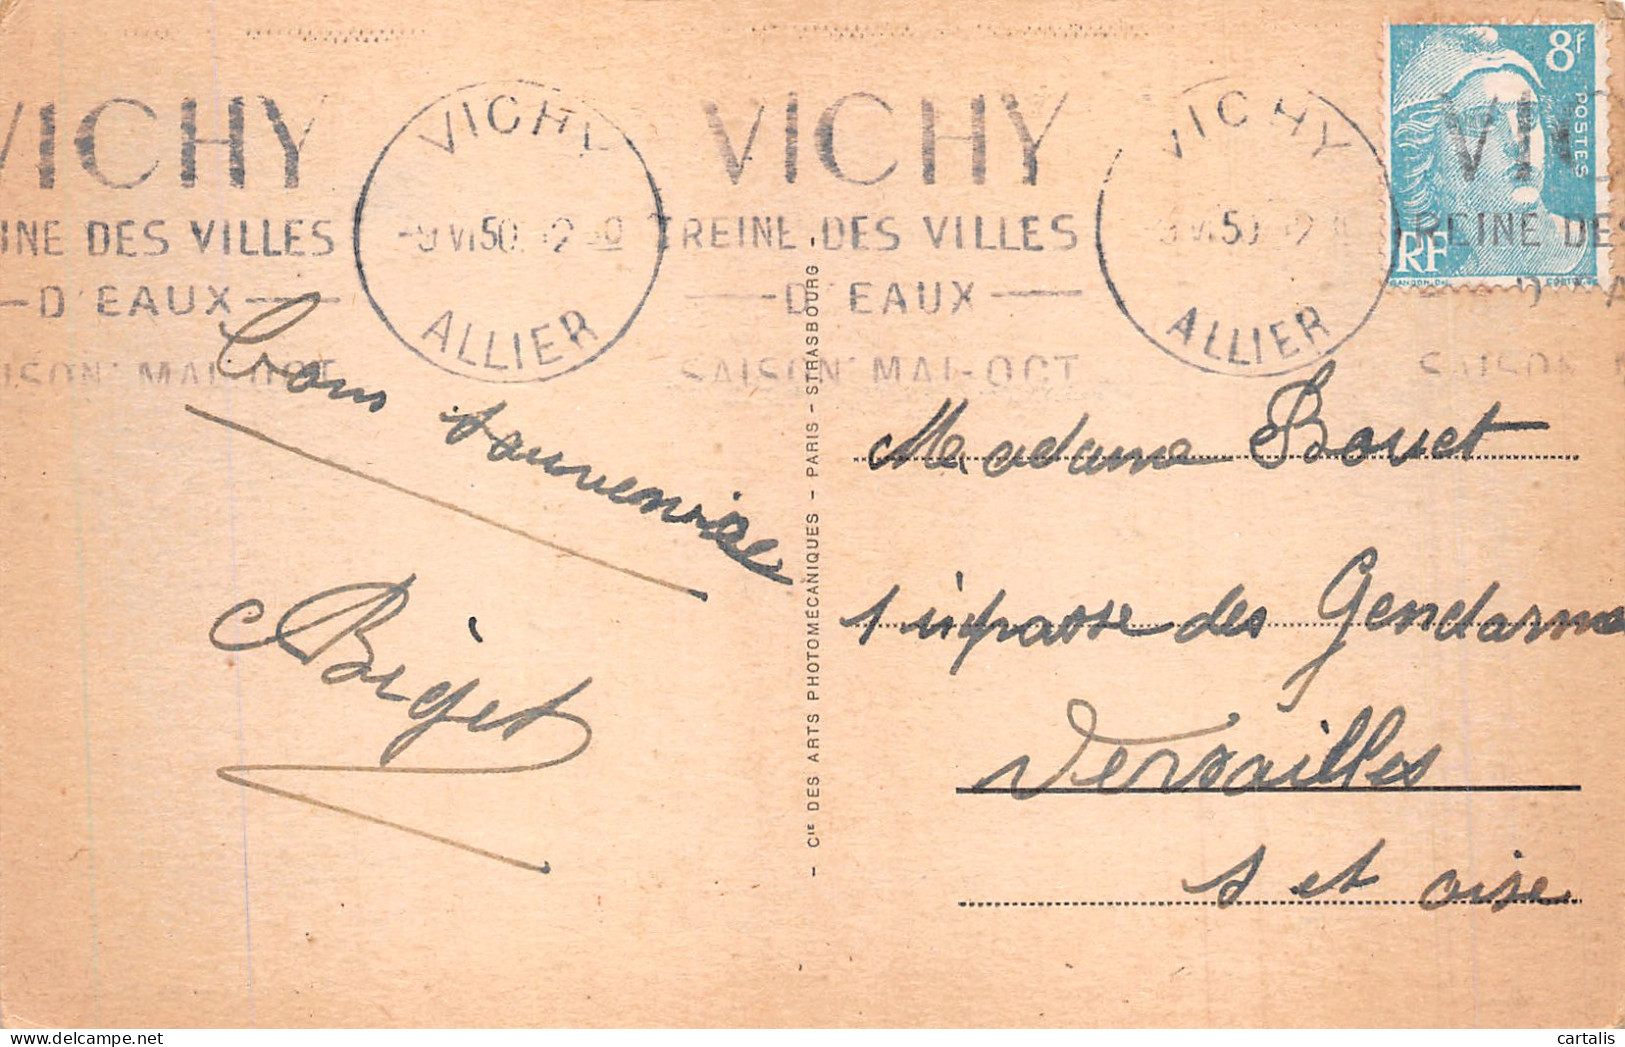 VICHY
REINE DES VILLES
D'EAUX
SAISON MAI-OCT
VICHY
ALLIER
VICHY
REINE DES VILLES
D'EAUX
SAISON MAI-OCT
VICHY
ALLIER
8F
POSTES
RF
VIC
REINE DES
SAISON
Bons souvenirs
Biget
- CIE DES ARTS PHOTOMÉCANIQUES - PARIS - STRASBOURG
Madame Bouet
1 impasse des Gendarmes
Versailles
S et oise
cartalis